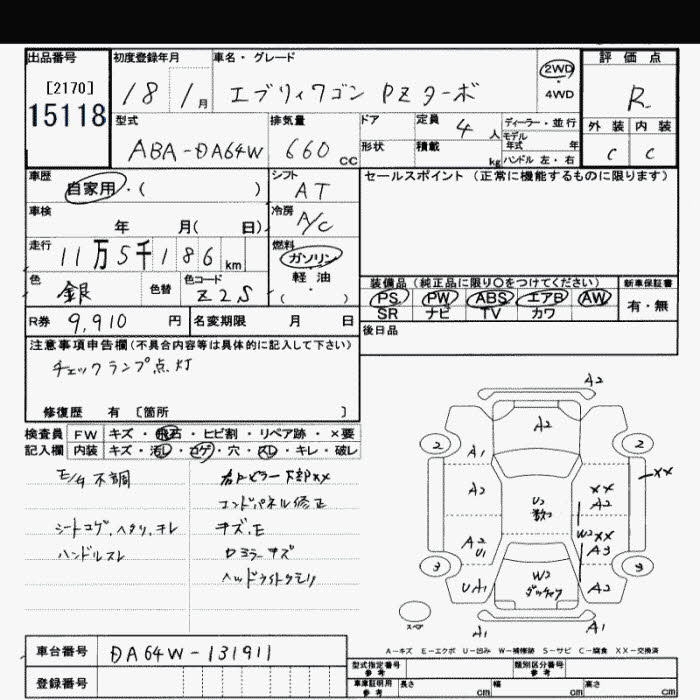 出品番号 初度登録年月 車名・グレード 2WD 評価点
[2170] 18 1月 エブリィワゴン PZターボ 4WD R
15118
型式 排気量 ドア 定員 4人 ディーラー・並行 外装 内装
ABA-DA64W 660cc 形状 積載 kg モデル年式 年 C C
ハンドル 左・右
車歴 自家用・( ) シフト AT セールスポイント (正常に機能するものに限ります)
車検 年 月( 日) 冷房 A/C
走行 11万5千186km 燃料 ガソリン・軽油・( )
色 銀 色替 色コード Z2S 装備品 (純正品に限り○をつけてください) 新車保証書
PS PW ABS エアB AW 有・無
SR ナビ TV カワ
R券 9,910円 名変期限 月 日 後日品
注意事項申告欄(不具合内容等は具体的に記入して下さい)
チェックランプ点灯
修復歴 有 [箇所 ]
検査員 FW キズ・飛石・ヒビ割・リペア跡・×要
記入欄 内装 キズ・汚レ・コゲ・穴・スレ・キレ・破レ
不調 右Bピラー下部XX
コンドパネル修正
シートコゲ、ヘタリ、キレ キズ、E
ハンドルスレ ドミラーキズ
ヘッドライトクモリ
A2
A2
2 2
A1 XX
A2 U2 XX
数コ A2
A2 W2XX
U1 A3
3 3
UA1 W3 A2
スペア
A1 A1
A-キズ E-エクボ U-凹み W-補修跡 S-サビ C-腐食 XX-交換済
車台番号 DA64W-131911
登録番号
型式指定番号 参考 類別区分番号 参考
車庫証明用 参考 長さ cm 幅 cm 高さ cm